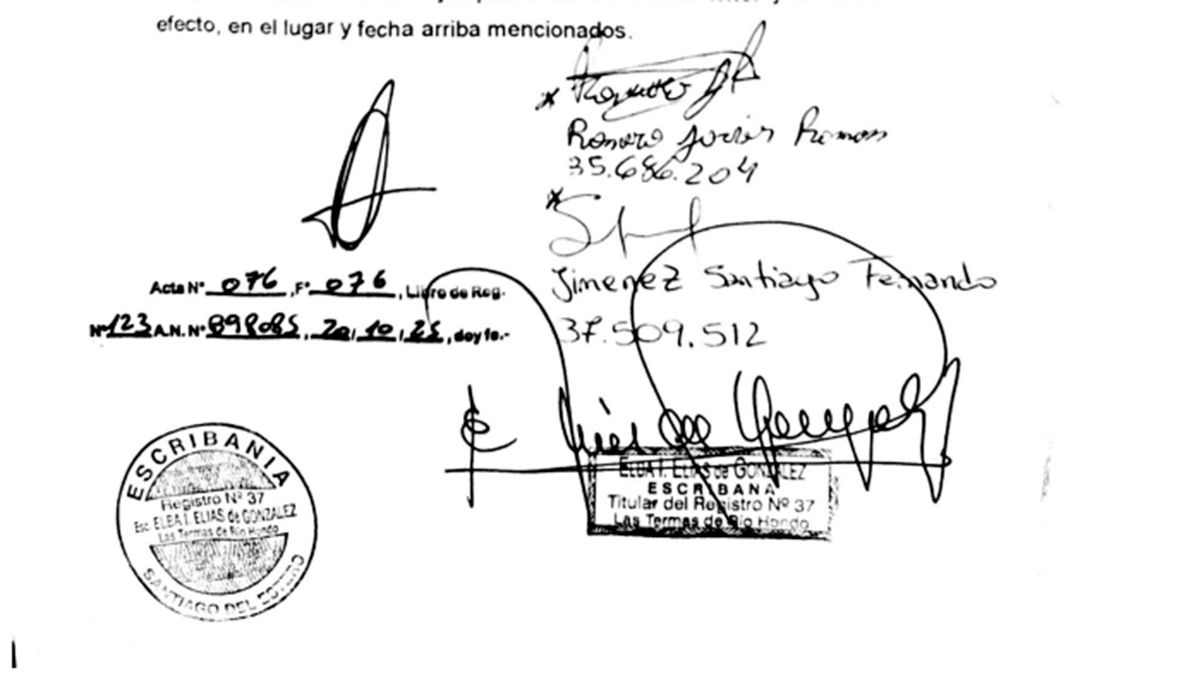 efecto, en el lugar y fecha arriba mencionados.
Romero Javier Ramon
35.686.204
Jimenez Santiago Fernando
37.509.512
Acta N° 076, F° 076, Libro de Reg.
N° 123 A.N. N° 898085, 20, 10, 25, doy fe.-
ELBA I. ELIAS de GONZALEZ
ESCRIBANA
Titular del Registro Nº 37
Las Termas de Río Hondo
ESCRIBANIA
Registro Nº 37
Esc. ELBA I. ELIAS de GONZALEZ
Las Termas de Río Hondo
SANTIAGO DEL ESTERO